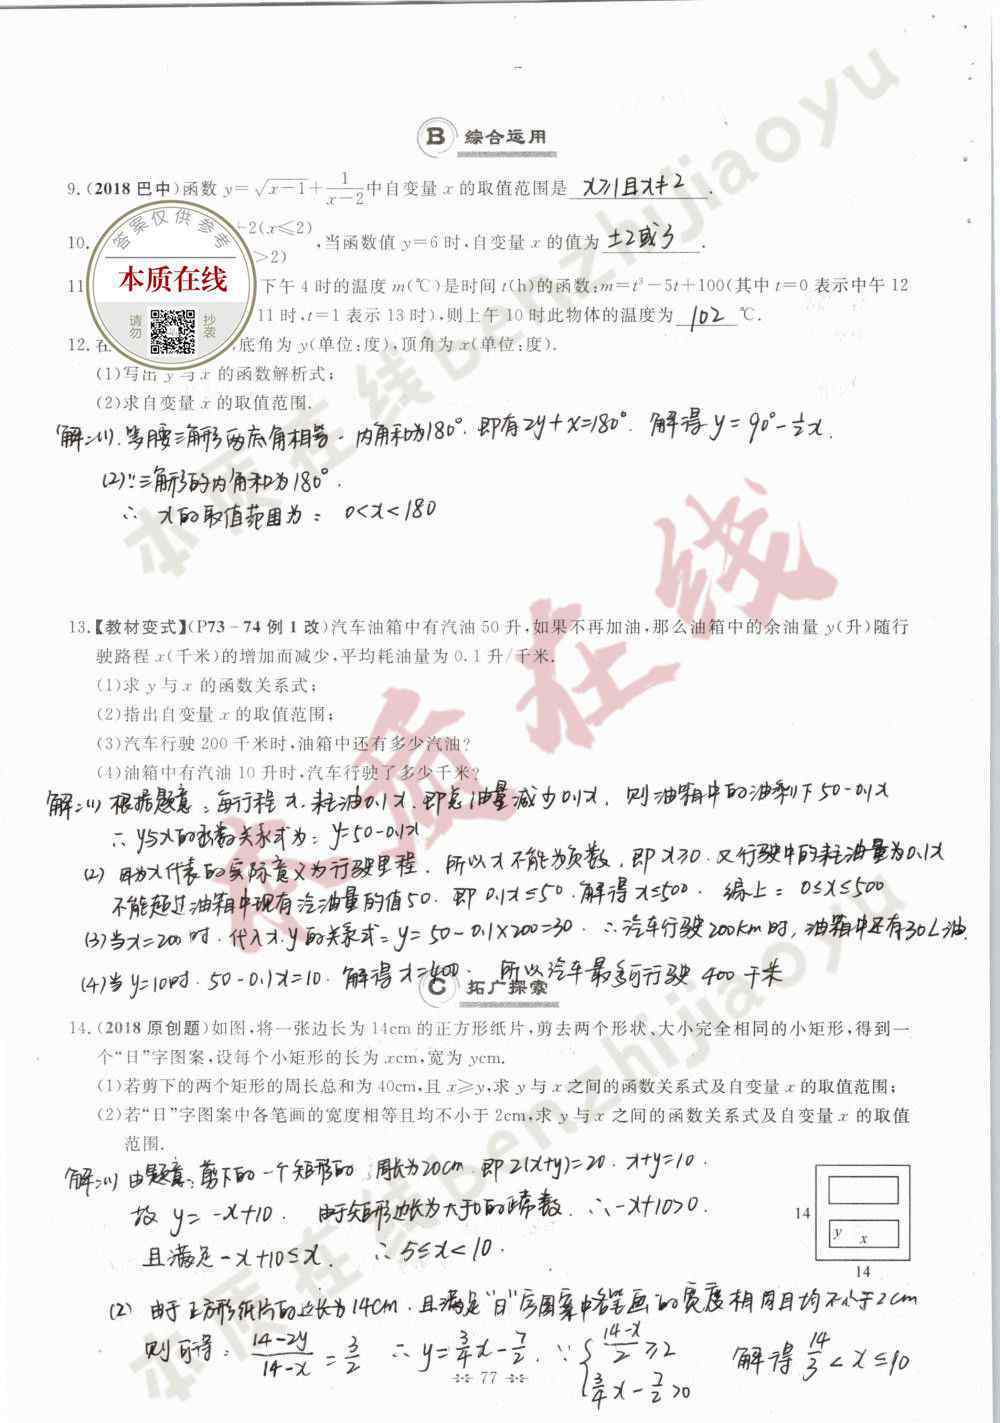 B 综合运用
9.(2018 巴中)函数 y=√(x-1)+1/(x-2)中自变量 x 的取值范围是 x≥1且x≠2.
10. +2(x≤2) >2) ,当函数值 y=6时,自变量 x 的值为 ±2或3.
答案仅供参考
本质在线
请勿抄袭
11 下午4时的温度 m(℃)是时间 t(h)的函数:m=t³-5t+100(其中 t=0 表示中午12
11时,t=1表示13时),则上午10时此物体的温度为 102 ℃.
12.在 底角为 y(单位:度),顶角为 x(单位:度).
(1)写出 y 与 x 的函数解析式;
(2)求自变量 x 的取值范围.
解:(1).等腰三角形两底角相等.内角和为180°.即有2y+x=180°.解得y=90°-½x.
(2)∵三角形的内角和为180°.
∴ x的取值范围为: 0<x<180
13.【教材变式】(P73-74例1改)汽车油箱中有汽油50升,如果不再加油,那么油箱中的余油量 y(升)随行
驶路程 x(千米)的增加而减少,平均耗油量为0.1升/千米.
(1)求 y 与 x 的函数关系式;
(2)指出自变量 x 的取值范围;
(3)汽车行驶200千米时,油箱中还有多少汽油?
(4)油箱中有汽油10升时,汽车行驶了多少千米?
解:(1)根据题意:每行程x.耗油0.1x.即总油量减少0.1x. 则油箱中的油剩下50-0.1x
∴ y与x的函数关系式为: y=50-0.1x
(2)因为x代表的实际意义为行驶里程.所以x不能为负数.即x≥0.又行驶中的耗油量为0.1x
不能超过油箱中现有汽油量的值50.即0.1x≤50.解得x≤500. 综上: 0≤x≤500
(3)当x=200时.代入x.y的关系式:y=50-0.1×200=30.∴汽车行驶200km时,油箱中还有30L油.
(4)当y=10时.50-0.1x=10.解得x=400. 所以汽车最多可行驶400千米
C 拓广探索
14.(2018 原创题)如图,将一张边长为14cm的正方形纸片,剪去两个形状、大小完全相同的小矩形,得到一
个“日”字图案,设每个小矩形的长为 xcm,宽为 ycm.
(1)若剪下的两个矩形的周长总和为40cm,且 x≥y,求 y 与 x 之间的函数关系式及自变量 x 的取值范围;
(2)若“日”字图案中各笔画的宽度相等且均不小于2cm,求 y 与 x 之间的函数关系式及自变量 x 的取值
范围.
解:(1)由题意:剪下的一个矩形的周长为20cm.即2(x+y)=20. x+y=10.
故 y=-x+10. 由于矩形边长为大于0的正常数.∴-x+10>0.
且满足-x+10≤x. ∴5≤x<10.
14
y x
14
(2)由于正方形纸片的边长为14cm.且满足“日”字图案中各笔画的宽度相同且均不小于2cm
则可得: (14-2y)/(14-x)=3/2 ∴y=¾x-7/2. ∵{(14-x)/2≥2
¾x-7/2>0 解得 14/3<x≤10
77
本质在线
本质在线benzhijiaoyu
本质在线benzhijiaoyu